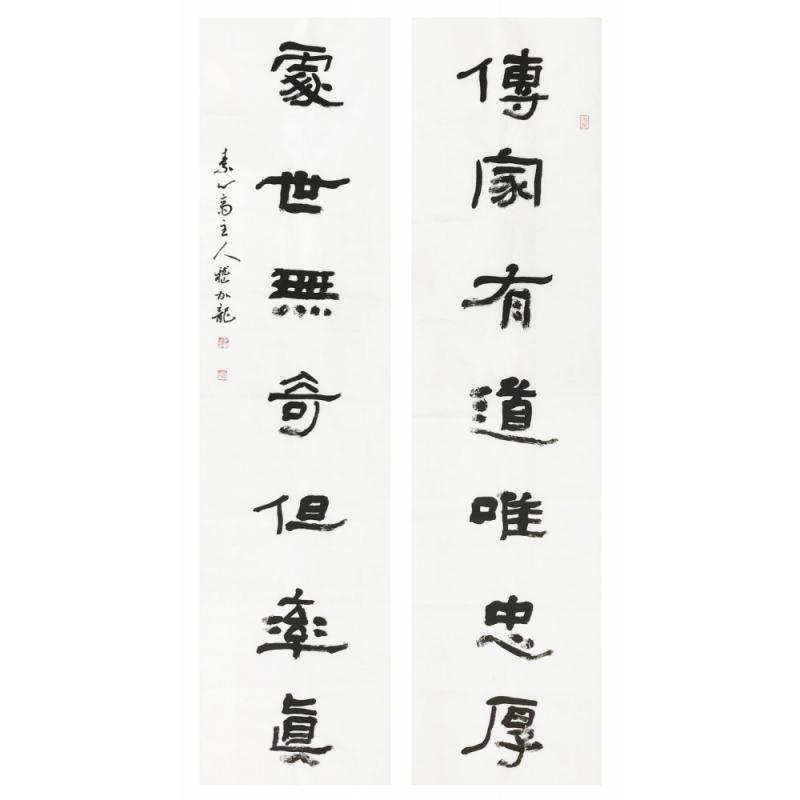 傳家有道唯忠厚
處世無奇但率眞
素心齋主人加龍